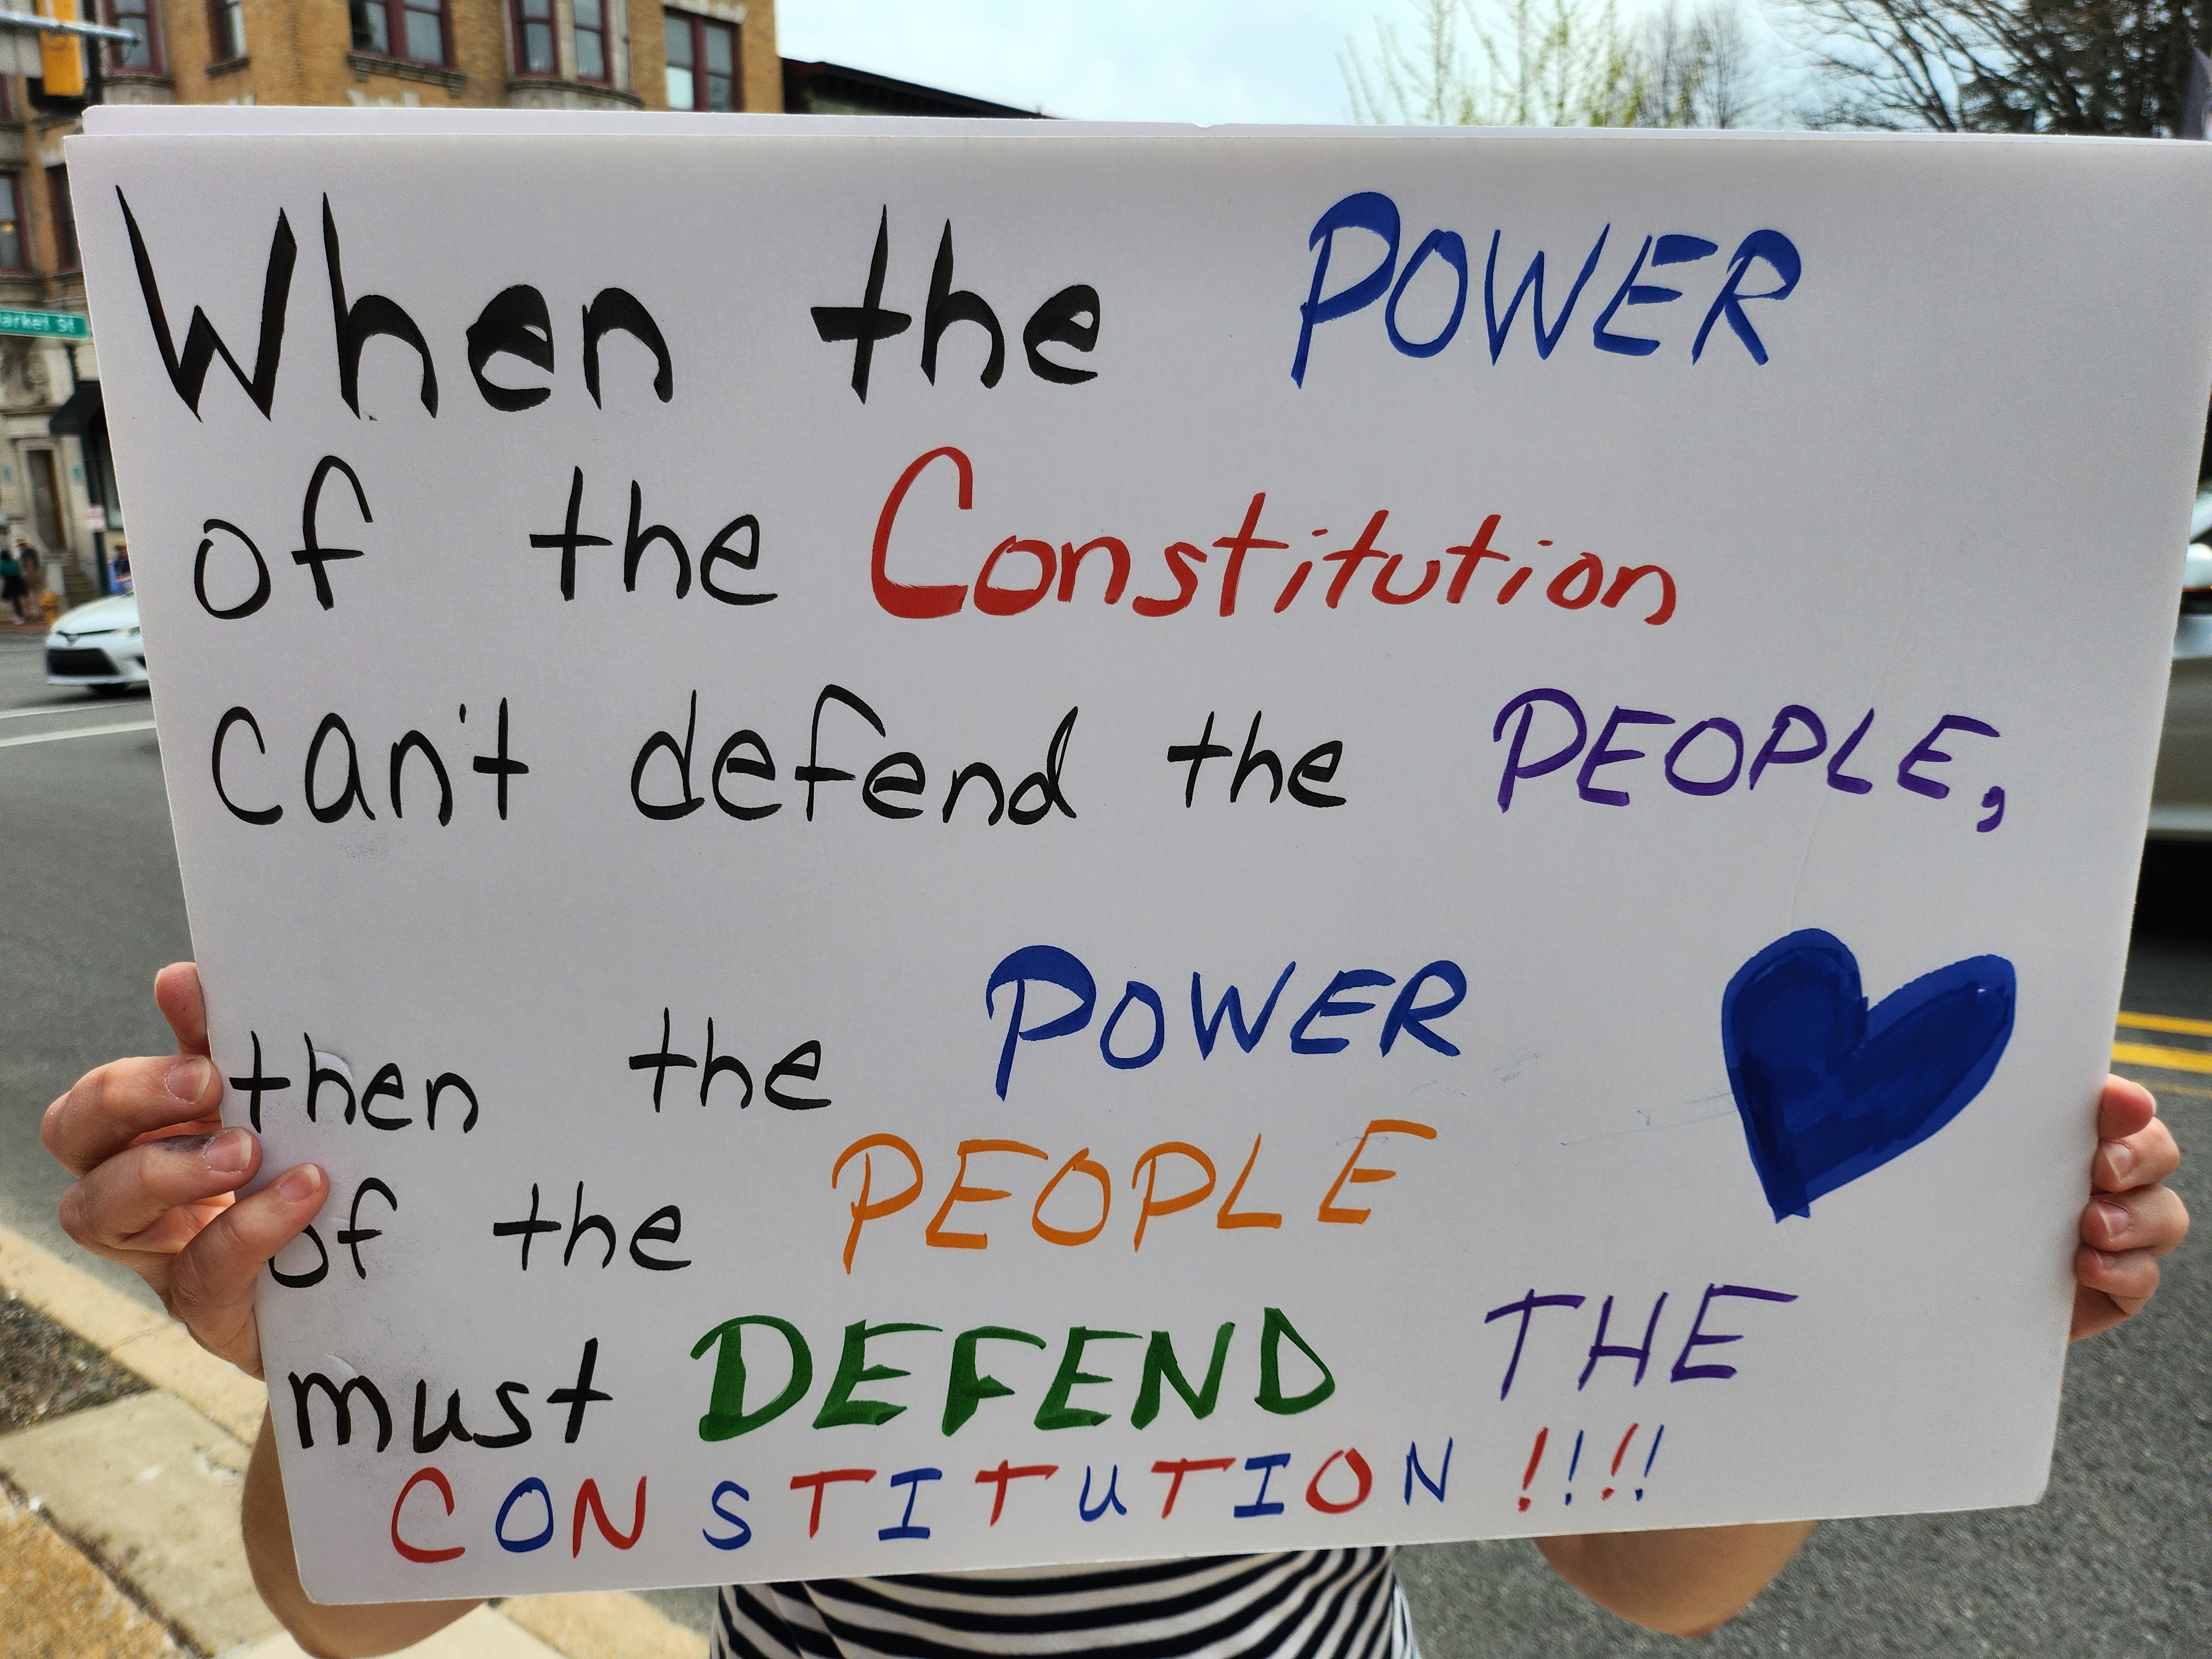 When the POWER
of the Constitution
can't defend the PEOPLE,
then the POWER
of the PEOPLE
must DEFEND THE
CONSTITUTION !!!!
arket St